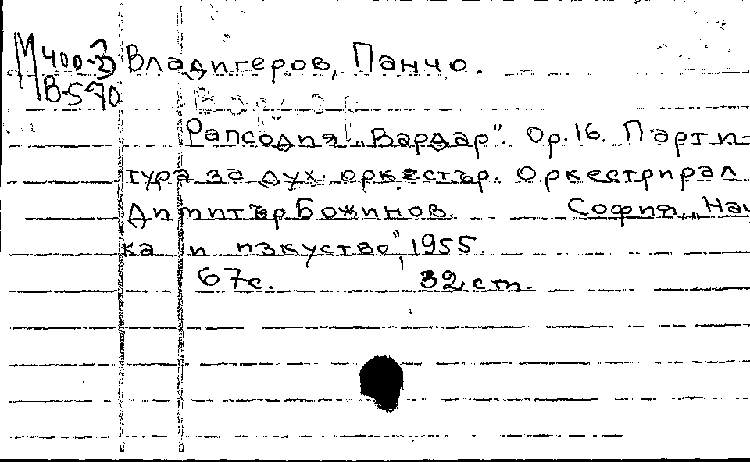 М 400-3 Владигеров, Панчо.
В-570
Рапсодия „Вардар". Op.16. Парти-
тура за дух. оркестър. Оркестрирал
Димитър Божинов. София, „Нау
ка и изкуство", 1955.
67с. 32 cm.